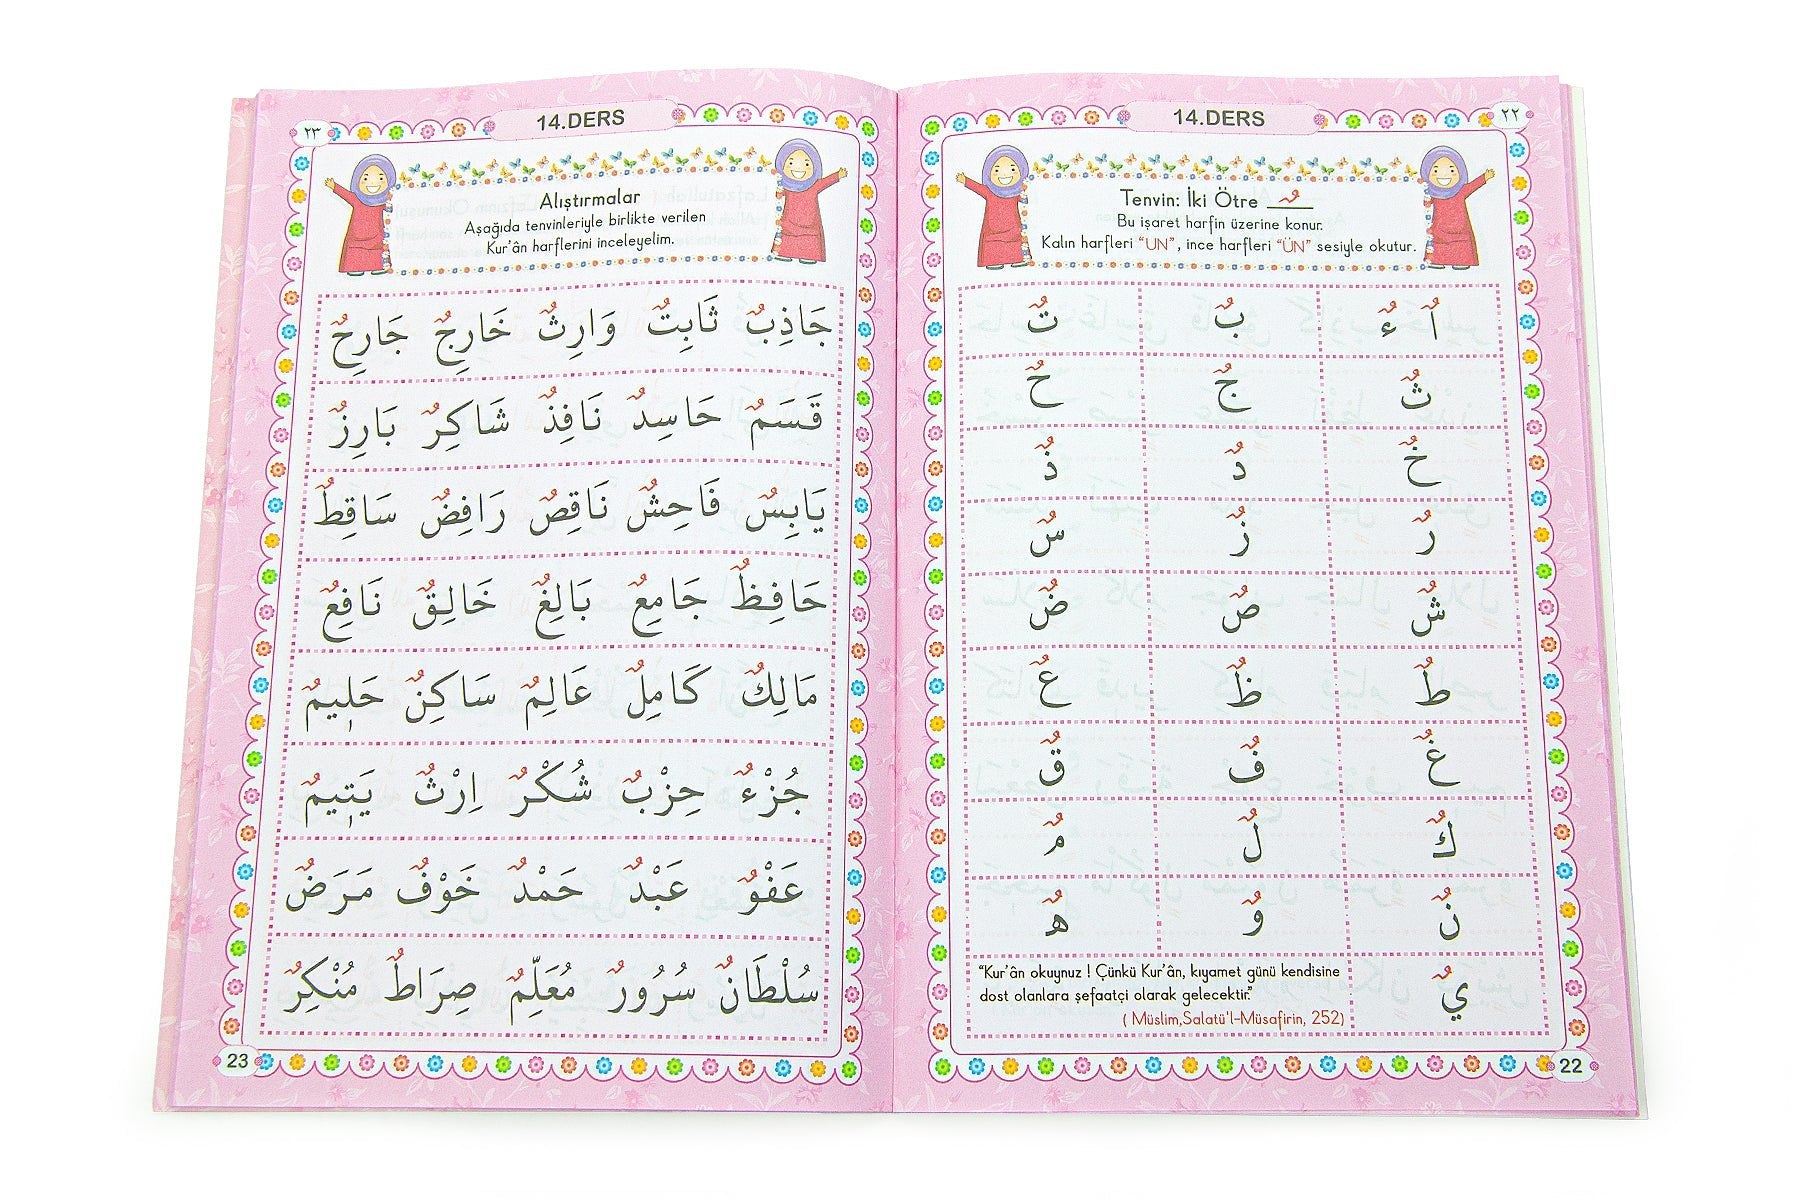 ٢٢
14.DERS
Tenvin: İki Ötre ـٌ
Bu işaret harfin üzerine konur.
Kalın harfleri “UN”, ince harfleri “ÜN” sesiyle okutur.
اٌ ءٌ بٌ تٌ
ثٌ جٌ حٌ
خٌ دٌ ذٌ
رٌ زٌ سٌ
شٌ صٌ ضٌ
طٌ ظٌ عٌ
غٌ فٌ قٌ
كٌ لٌ مٌ
نٌ وٌ هٌ
يٌ
“Kur’ân okuyunuz ! Çünkü Kur’ân, kıyamet günü kendisine
dost olanlara şefaatçi olarak gelecektir.”
( Müslim,Salatü'l-Müsafirin, 252)
22
٢٣
14.DERS
Alıştırmalar
Aşağıda tenvinleriyle birlikte verilen
Kur’ân harflerini inceleyelim.
جَاذِبٌ ثَابِتٌ وَارِثٌ خَارِجٌ جَارِحٌ
قَسَمٌ حَاسِدٌ نَافِذٌ شَاكِرٌ بَارِزٌ
يَابِسٌ فَاحِشٌ نَاقِصٌ رَافِضٌ سَاقِطٌ
حَافِظٌ جَامِعٌ بَالِغٌ خَالِقٌ نَافِعٌ
مَالِكٌ كَامِلٌ عَالِمٌ سَاكِنٌ حَلِيمٌ
جُزْءٌ حِزْبٌ شُكْرٌ اِرْثٌ يَتِيمٌ
عَفْوٌ عَبْدٌ حَمْدٌ خَوْفٌ مَرَضٌ
سُلْطَانٌ سُرُورٌ مُعَلِّمٌ صِرَاطٌ مُنْكِرٌ
23